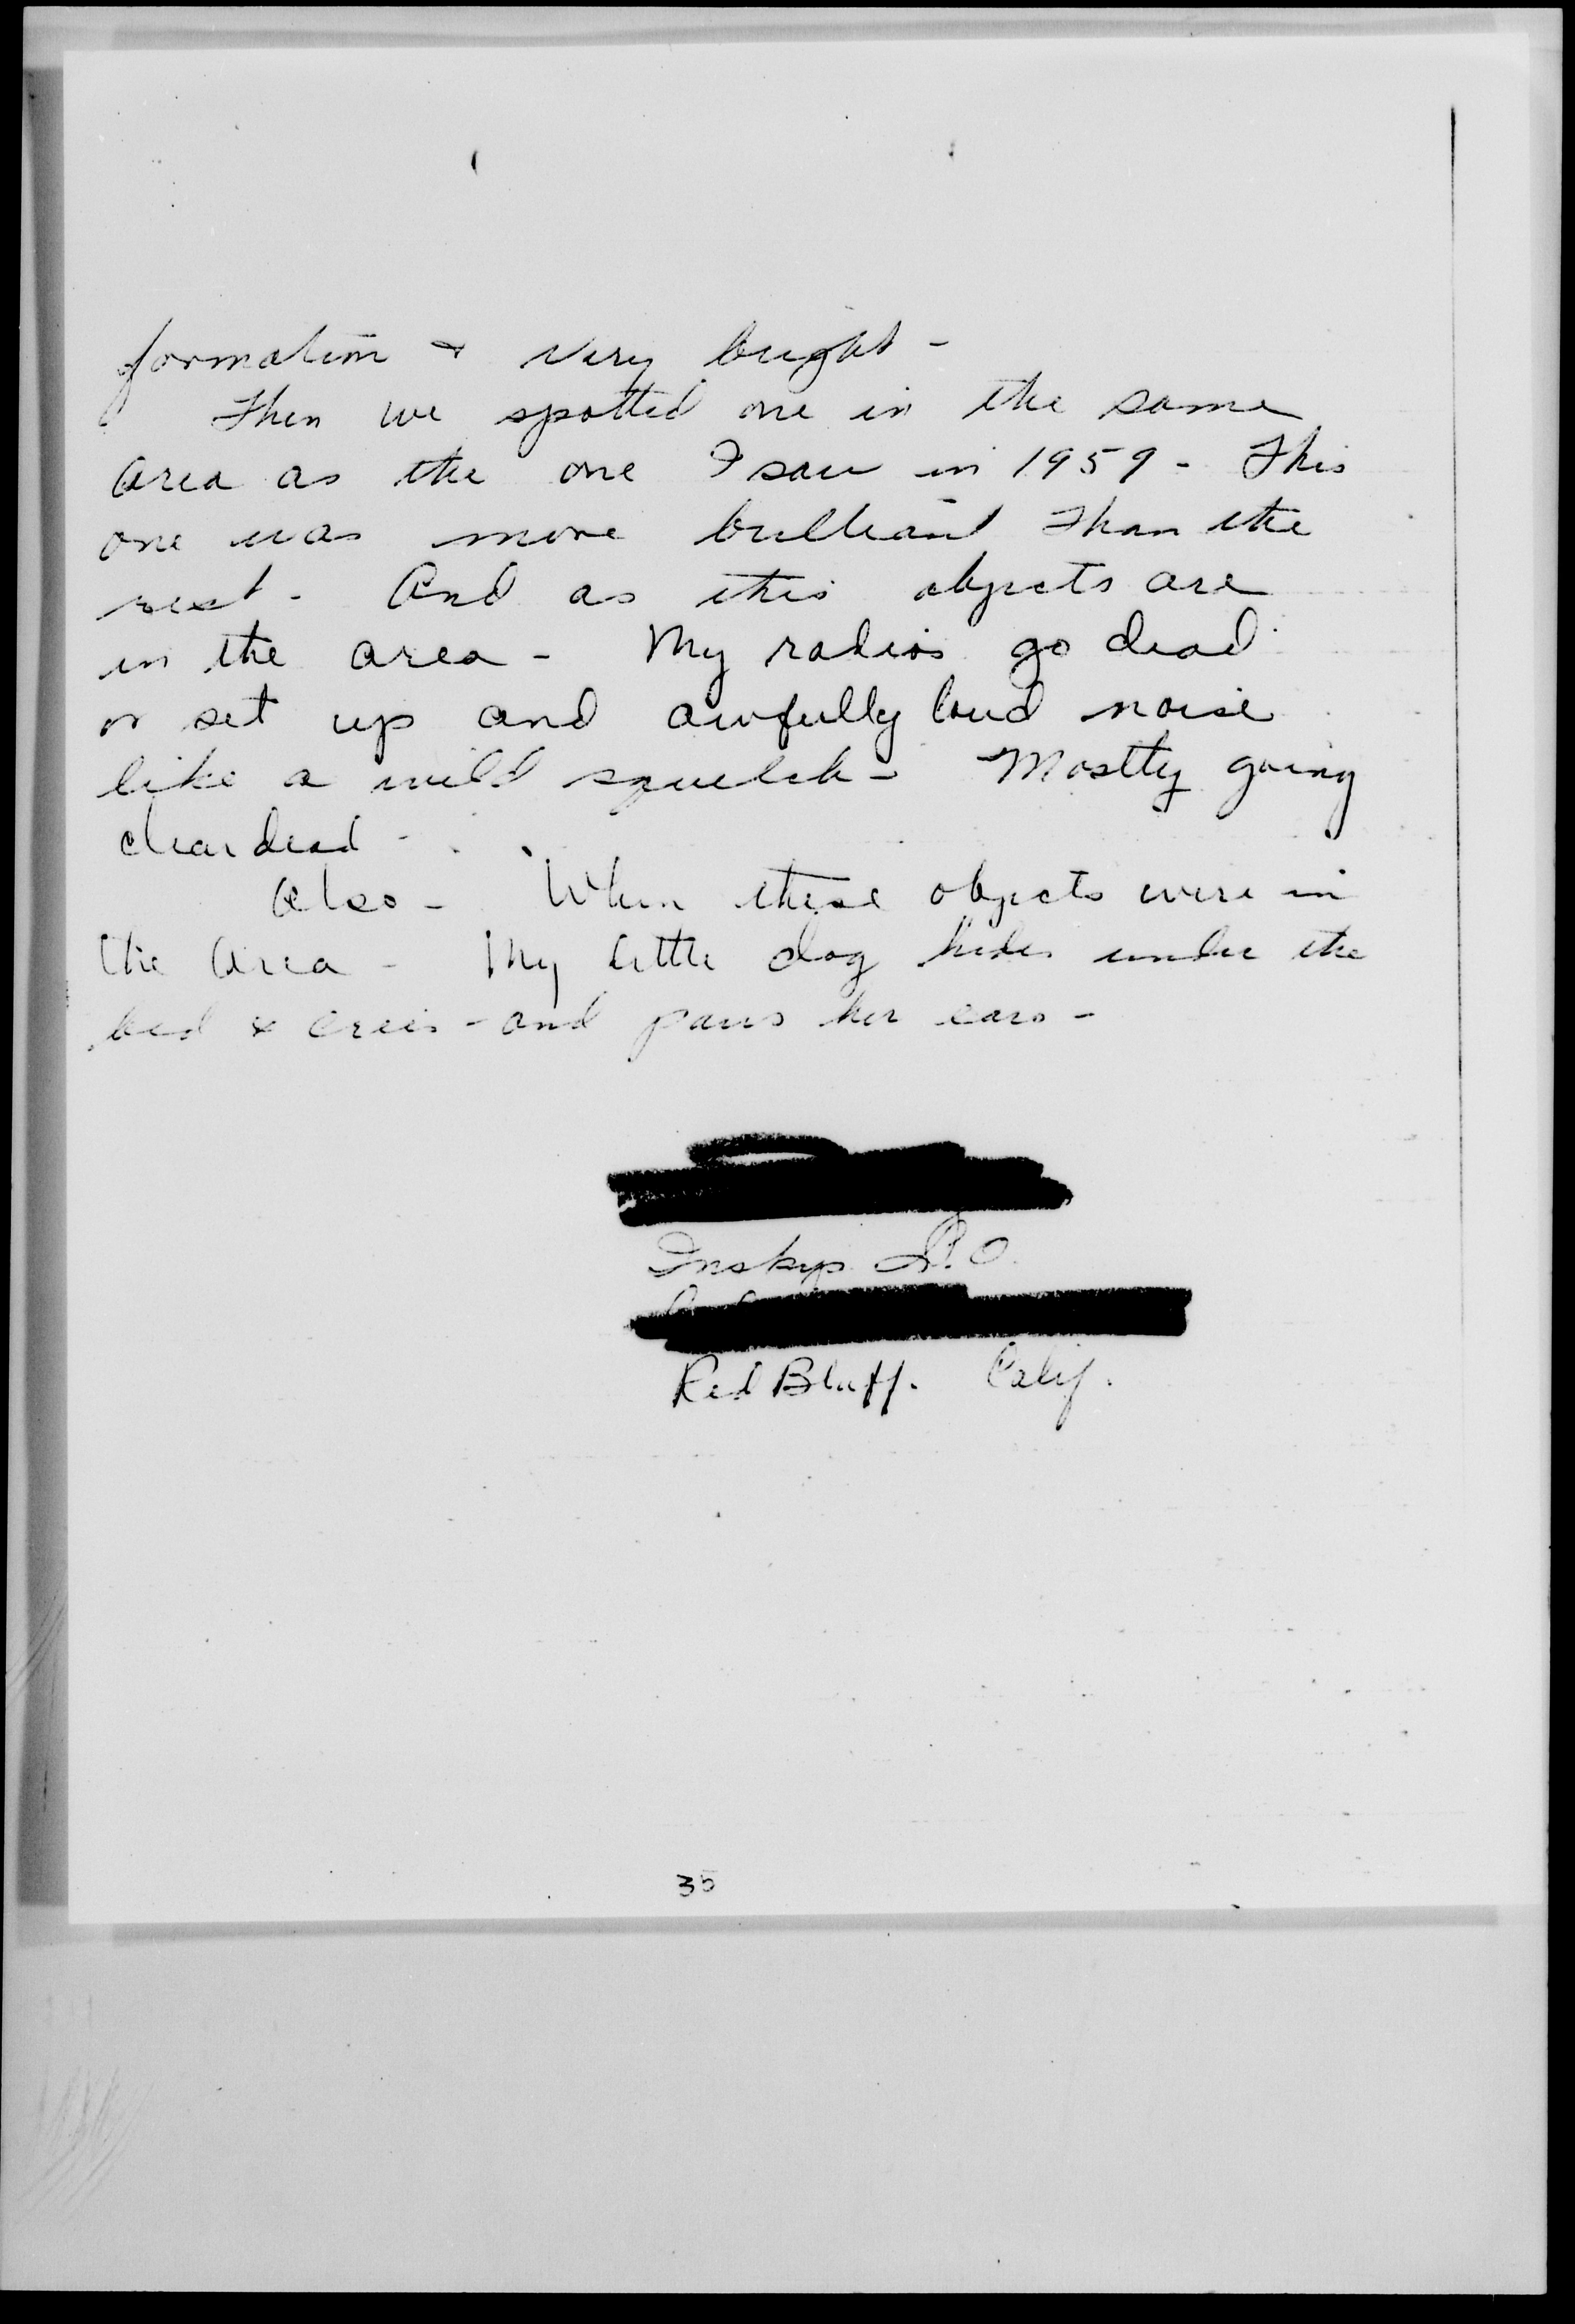 formation & very bright -
Then we spotted one in the same
area as the one I saw in 1959 - This
one was more brilliant than the
rest - And as this objects are
in the area - My radios go dead
or set up and awfully loud noise
like a wild squelch - Mostly going
clear dead -
Also - When these objects were in
the area - My little dog hides under the
bed & cries - and paws her ears -
Inskip L.O.
Red Bluff. Calif.
35